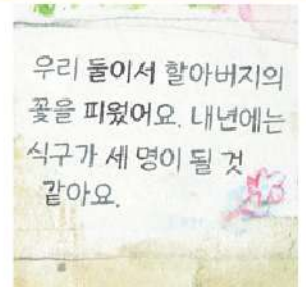 우리 둘이서 할아버지의
꽃을 피웠어요. 내년에는
식구가 세 명이 될 것
같아요.